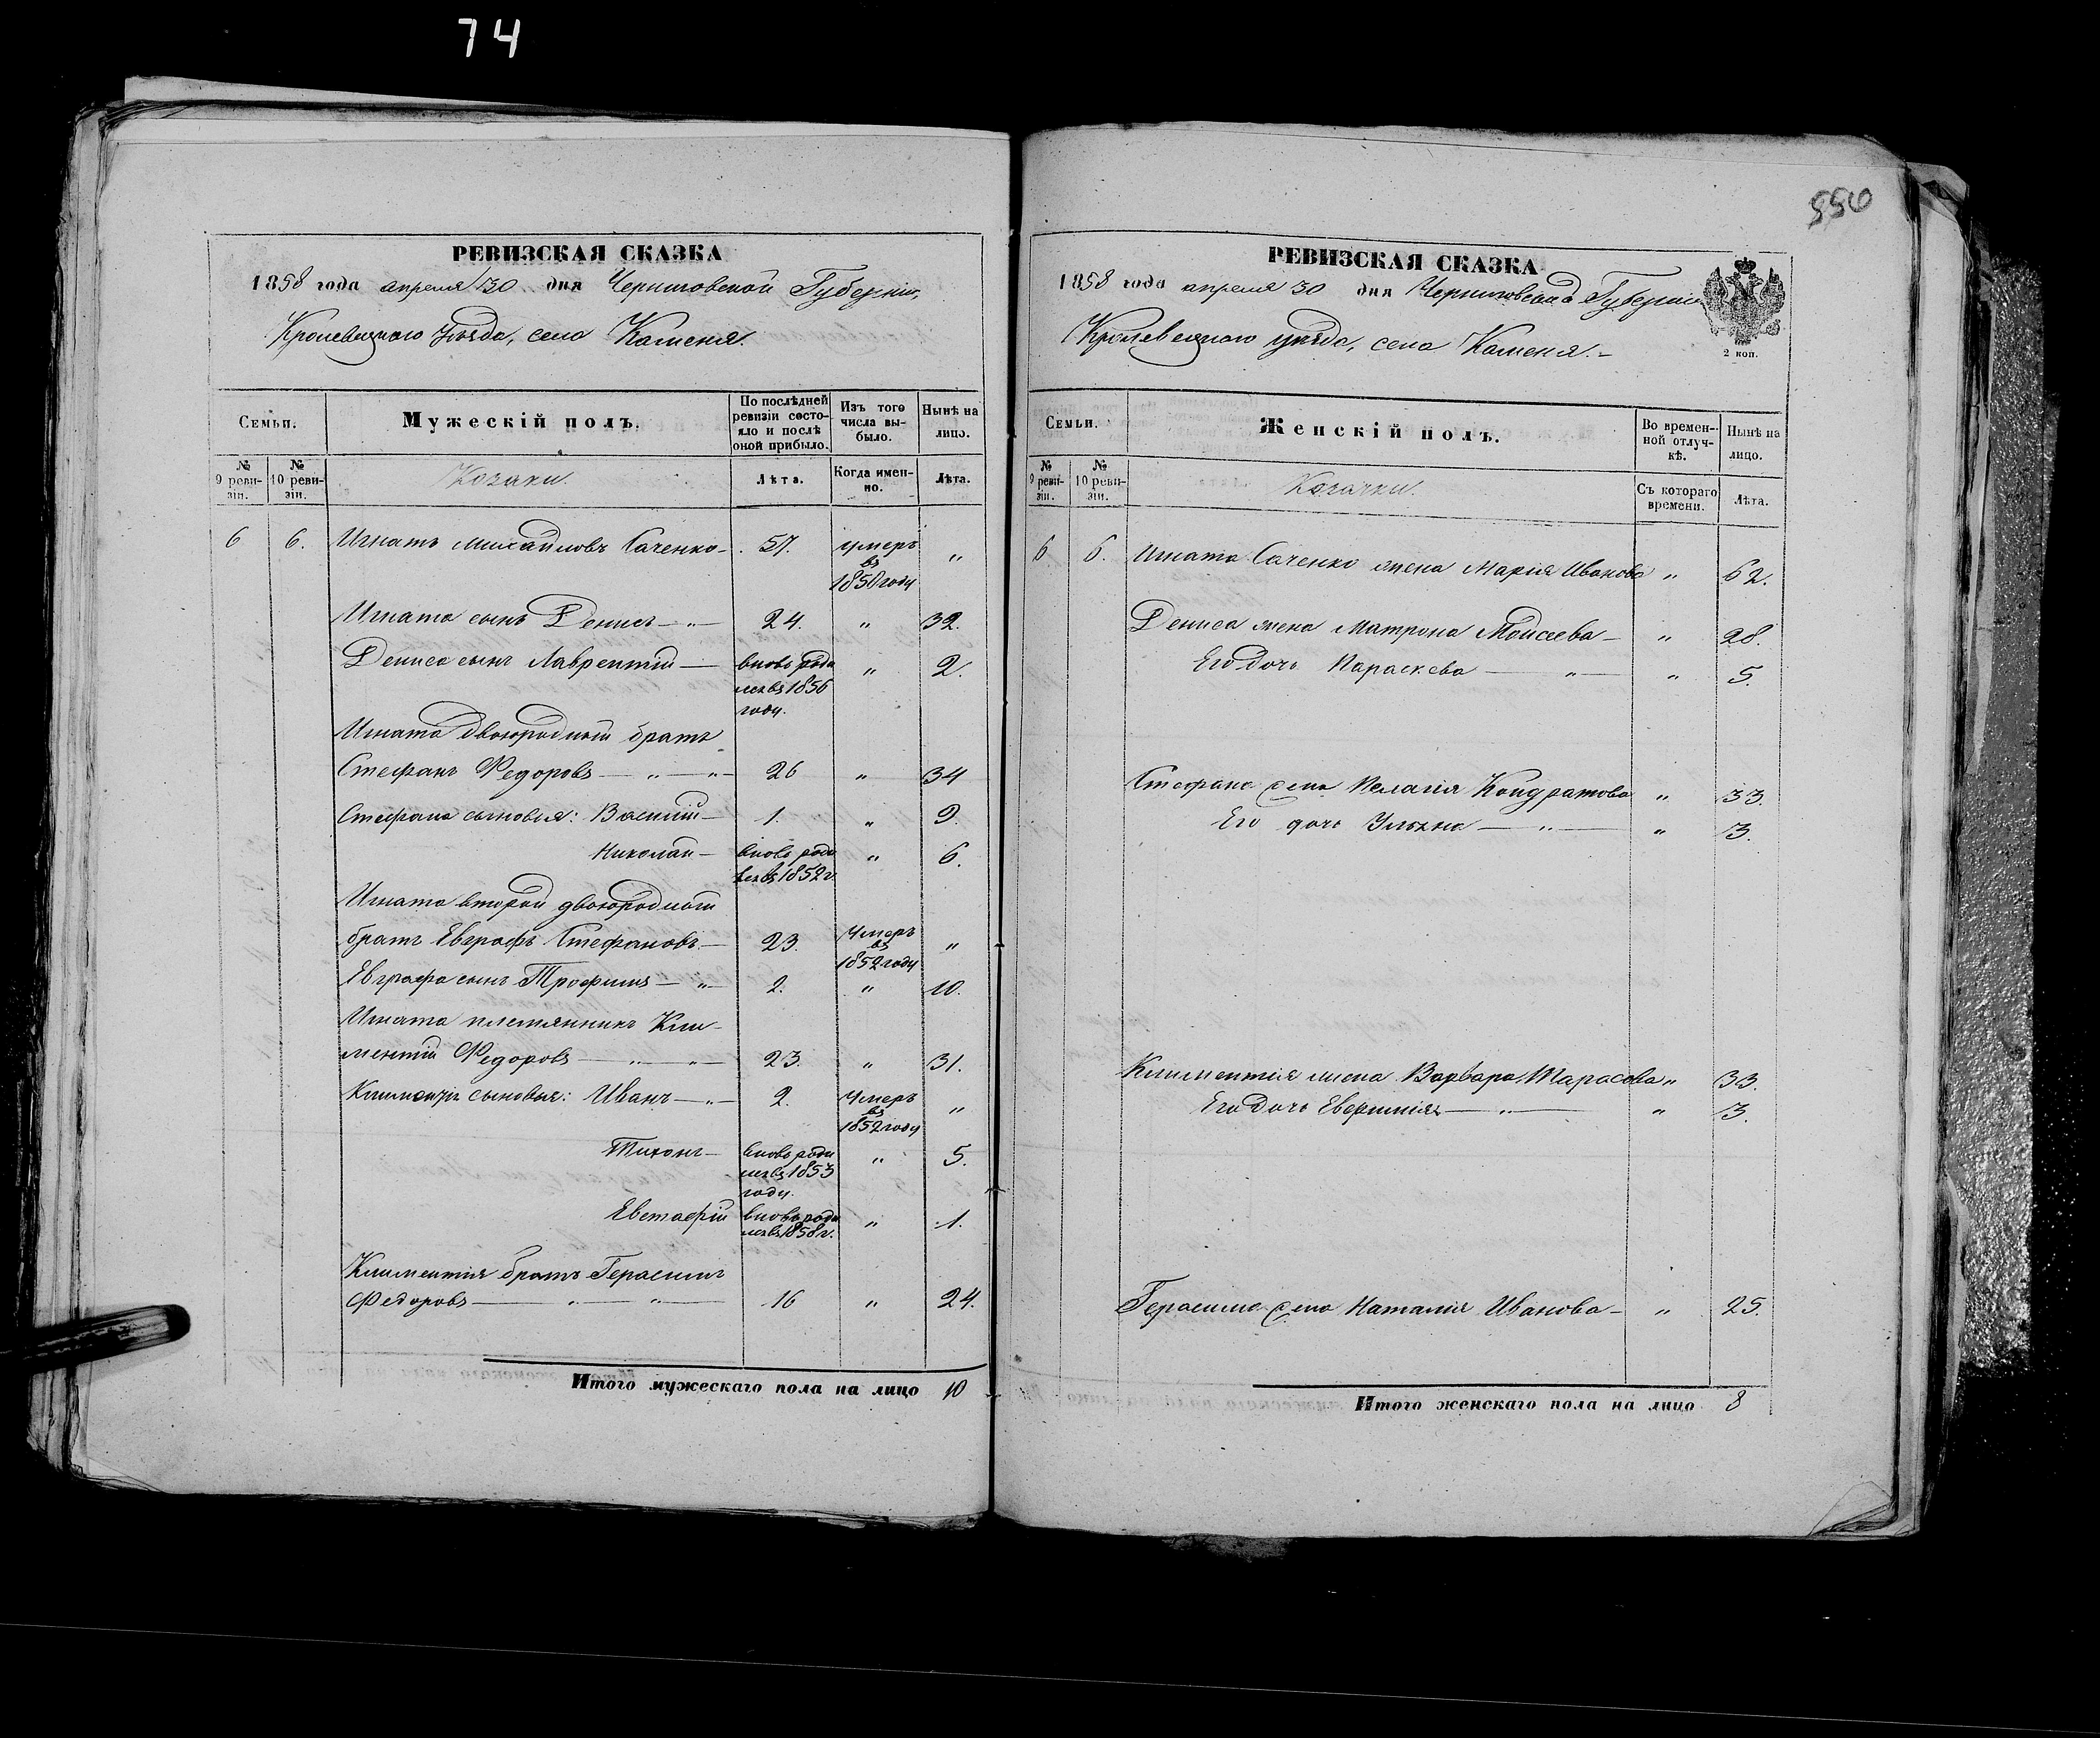 74
556
РЕВИЗСКАЯ СКАЗКА
1858 года апреля 30 дня Черниговской Губерніи,
Кролевецкаго Уѣзда, села Каменя.
Семьи.
Мужескій полъ.
По послѣдней ревизіи состояло и послѣ оной прибыло.
Изъ того числа выбыло.
Нынѣ на лицо.
№ 9 ревизіи.
№ 10 ревизіи.
Козаки.
Лѣта.
Когда именно.
Лѣта.
6 6. Игнатъ Михайловъ Саченко 57. умеръ въ 1850 году „
Игната сынъ Денисъ — „ — 24. „ 32.
Дениса сынъ Лаврентій — вновь родился въ 1856 году. „ 2.
Игната двоюродный братъ
Стефанъ Федоровъ — „ — „ — 26 „ 34
Стефана сыновья: Василій — 1. „ 9.
Николай — вновь родился въ 1852 г. „ 6.
Игната второй двоюродный
братъ Евграфъ Стефановъ — 23. Умеръ въ 1852 году „
Евграфа сынъ Трофимъ — „ — 2. „ 10.
Игната племянникъ Кли-
ментій Федоровъ — „ — „ — 23. „ 31.
Климентія сыновья: Иванъ — „ — 2. Умеръ въ 1852 году „
Тихонъ — вновь родился въ 1853 году. „ 5.
Евстафій вновь родился въ 1858 г. „ 1.
Климентія братъ Герасимъ
Федоровъ — „ — „ — 16 „ 24.
Итого мужескаго пола на лицо 10
РЕВИЗСКАЯ СКАЗКА
1858 года апреля 30 дня Черниговской Губерніи
Кролевецкаго уѣзда, села Каменя. —
2 коп.
Семьи.
Женскій полъ.
Во временной отлучкѣ.
Нынѣ на лицо.
№ 9 ревизіи.
№ 10 ревизіи.
Козачки.
Съ котораго времени.
Лѣта.
6 6. Игната Саченко жена Марія Иванова „ 62.
Дениса жена Матрона Моисеева — „ 28.
Его дочь Параскева — „ — „ 5.
Стефана жена Пелагія Кондратова „ 33.
Его дочь Ульяна — „ — „ 3.
Климентія жена Варвара Тарасова „ 33.
Его дочь Евфимія — „ — „ 3.
Герасима жена Наталія Иванова — „ 25.
Итого женскаго пола на лицо 8